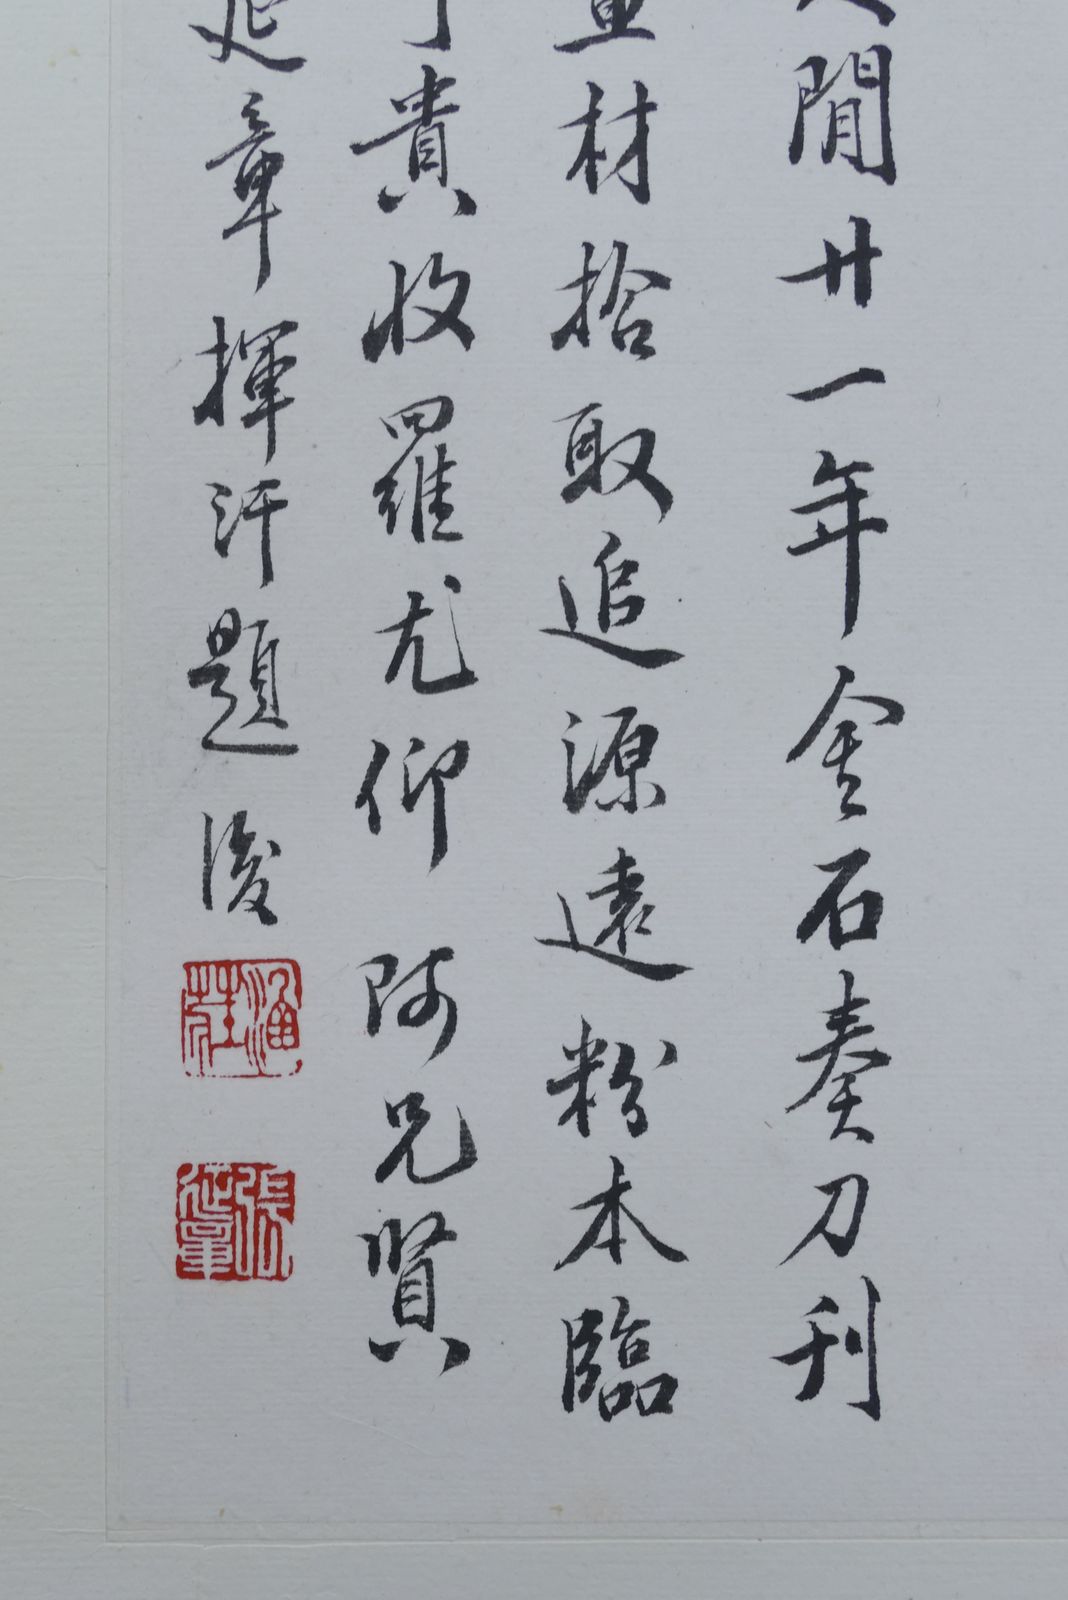 閒廿一年金石奏刀刊
材拾取追源遠粉本臨
貴收羅尤仰阿兄賢
延章揮汗題後
張延章